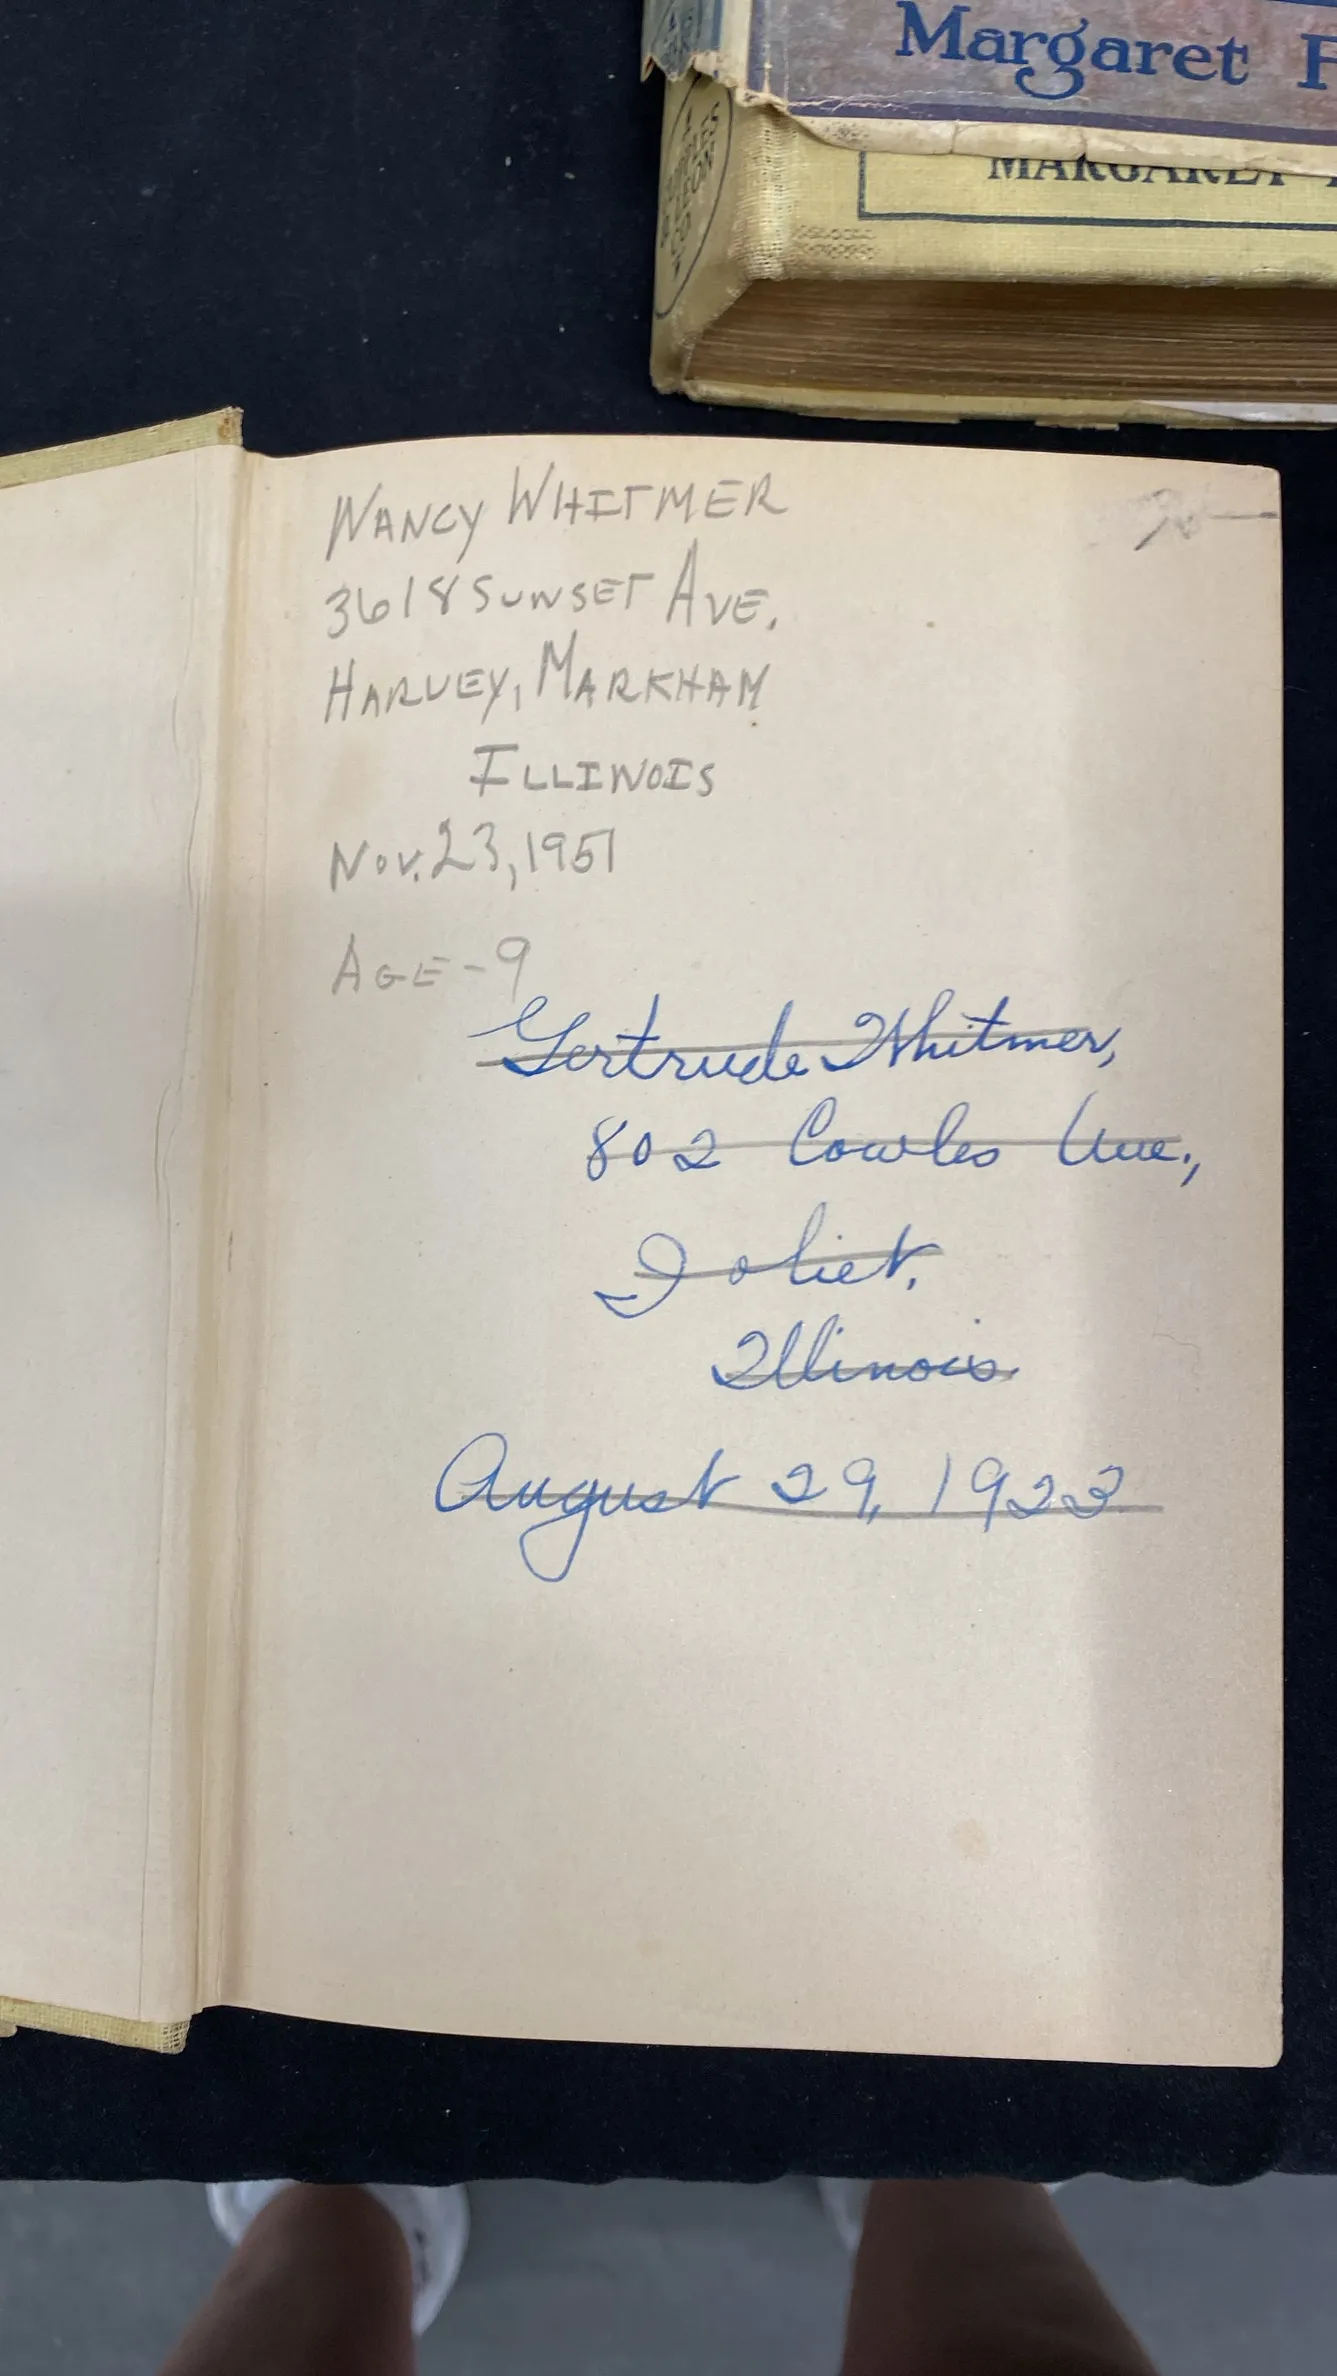 Margaret
MARGARET
NANCY WHITMER
3618 SUNSET AVE.
HARVEY, MARKHAM
ILLINOIS
NOV. 23, 1951
AGE - 9
Gertrude Whitmer,
802 Cowles Ave.,
Joliet,
Illinois
August 29, 1923